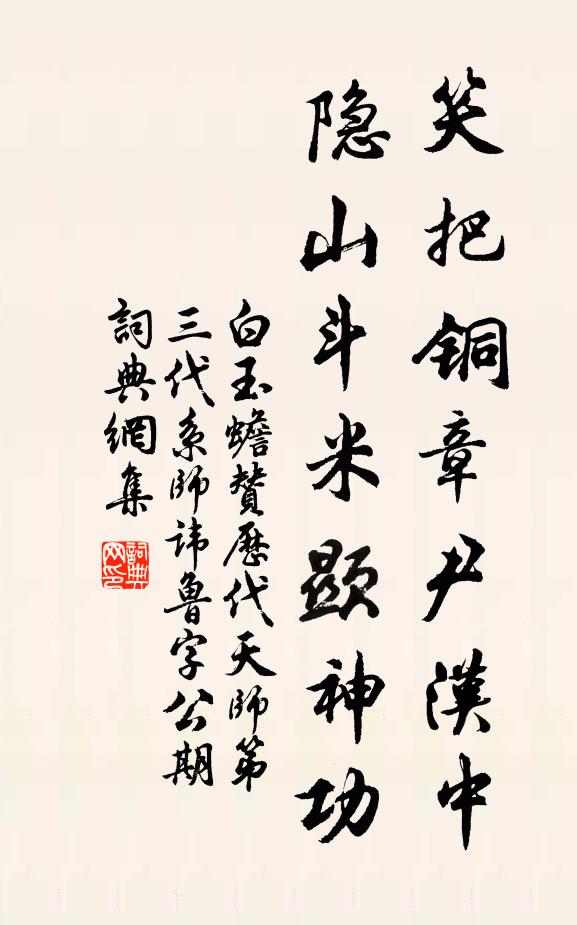 笑把铜章尹漢中
隐山斗米顕神功
白玉蟾贊歷代天师第
三代系师諱魯字公期
詞典網集
詞典网印